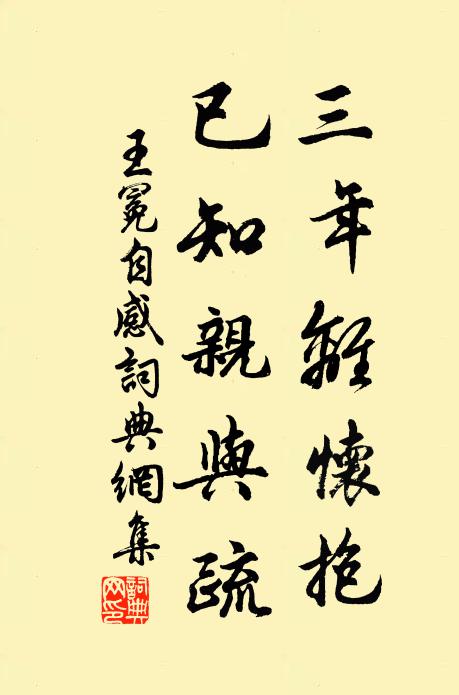 三年離懷抱
已知親與疏
王冕自感詞典網集
詞典
网印